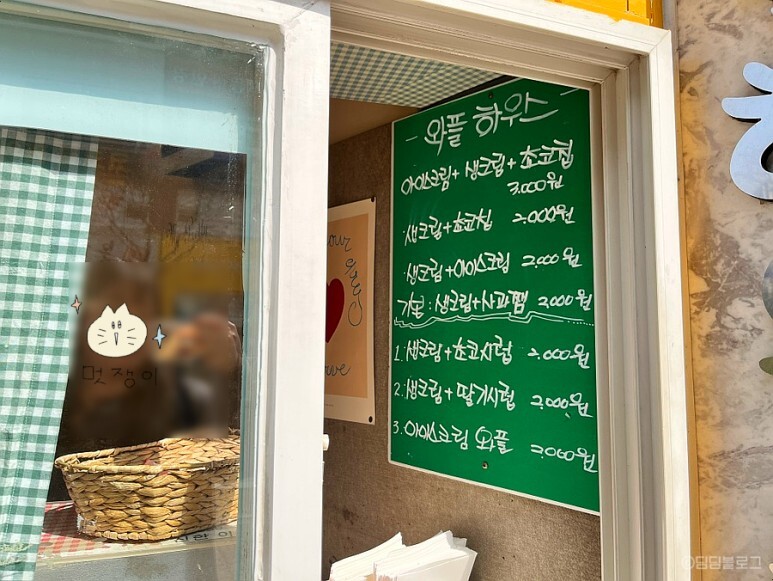 - 와플 하우스 -
아이스크림 + 생크림 + 초코칩
3,000원
·생크림 + 초코칩 2,000원
·생크림 + 아이스크림 2,000원
기본 : 생크림 + 사과쨈 2,000원
1. 생크림 + 초코시럽 2,000원
2. 생크림 + 딸기시럽 2,000원
3. 아이스크림 와플 2,000원
your
love
멋쟁이
@딤딤블로그